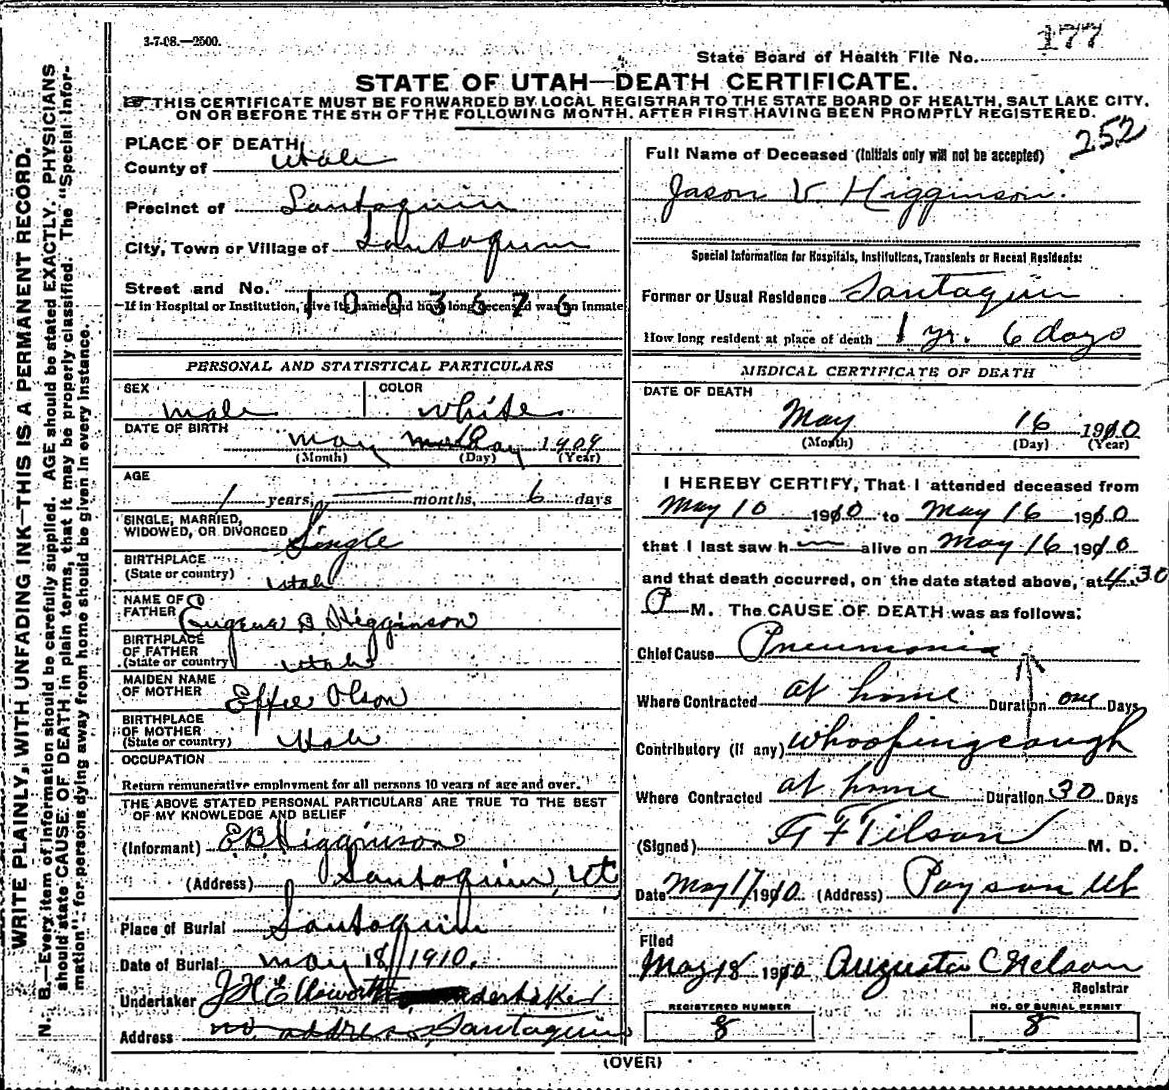 3-7-08.—2500.
177
State Board of Health File No.
STATE OF UTAH—DEATH CERTIFICATE.
THIS CERTIFICATE MUST BE FORWARDED BY LOCAL REGISTRAR TO THE STATE BOARD OF HEALTH, SALT LAKE CITY,
ON OR BEFORE THE 5TH OF THE FOLLOWING MONTH, AFTER FIRST HAVING BEEN PROMPTLY REGISTERED.
252
WRITE PLAINLY, WITH UNFADING INK—THIS IS A PERMANENT RECORD.
N. B.—Every item of information should be carefully supplied. AGE should be stated EXACTLY. PHYSICIANS
should state CAUSE OF DEATH in plain terms, that it may be properly classified. The "Special Infor-
mation" for persons dying away from home should be given in every instance.
PLACE OF DEATH
County of Utah
Precinct of Santaquin
City, Town or Village of Santaquin
Street and No.
If in Hospital or Institution, give its name and how long deceased was an Inmate
1003676
PERSONAL AND STATISTICAL PARTICULARS
SEX male COLOR white
DATE OF BIRTH
May 1909
(Month) (Day) (Year)
AGE
1 years, months, 6 days
SINGLE, MARRIED,
WIDOWED, OR DIVORCED Single
BIRTHPLACE
(State or country) Utah
NAME OF
FATHER Eugene B Higginson
BIRTHPLACE
OF FATHER
(State or country) Utah
MAIDEN NAME
OF MOTHER Effie Olson
BIRTHPLACE
OF MOTHER
(State or country) Utah
OCCUPATION
Return remunerative employment for all persons 10 years of age and over.
THE ABOVE STATED PERSONAL PARTICULARS ARE TRUE TO THE BEST
OF MY KNOWLEDGE AND BELIEF
(Informant) E B Higginson
(Address) Santaquin, Ut
Place of Burial Santaquin
Date of Burial May 18 1910.
Undertaker J H Ellsworth undertaker
Address no address, Santaquin
Full Name of Deceased (Initials only will not be accepted)
Jason V. Higginson.
Special Information for Hospitals, Institutions, Transients or Recent Residents:
Former or Usual Residence Santaquin
How long resident at place of death 1 yr. 6 days
MEDICAL CERTIFICATE OF DEATH
DATE OF DEATH
May 16 1910
(Month) (Day) (Year)
I HEREBY CERTIFY, That I attended deceased from
May 10 1910 to May 16 1910
that I last saw h alive on May 16 1910
and that death occurred, on the date stated above, at 4.30
P M. The CAUSE OF DEATH was as follows:
Chief Cause Pneumonia
Where Contracted at home Duration one Days
Contributory (If any) Whooping cough
Where Contracted at home Duration 30 Days
(Signed) A F Tilson M. D.
Date May 17 1910 (Address) Payson Ut
Filed
May 18 1910 Augusta C Nelson
Registrar
REGISTERED NUMBER
8
NO. OF BURIAL PERMIT
8
(OVER)